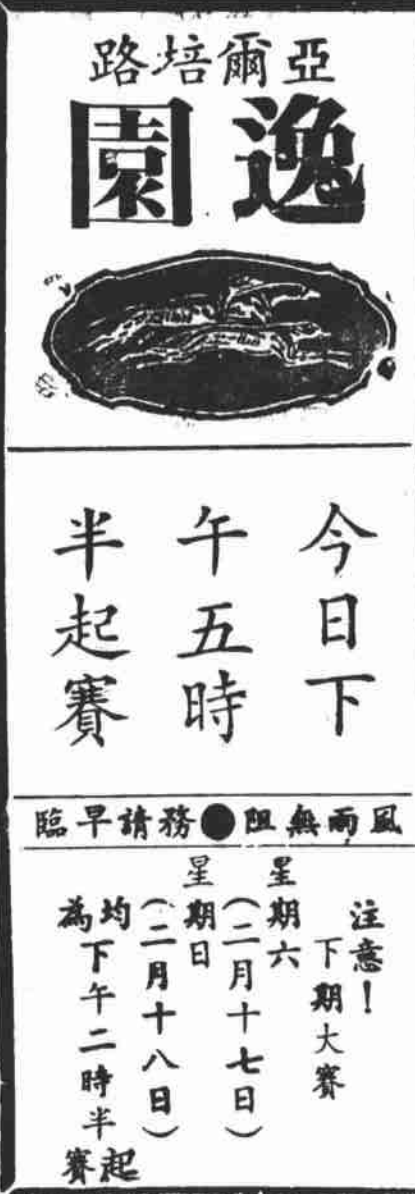 亞爾培路
逸園
今日下
午五時
半起賽
風雨無阻●務請早臨
注意！
下期大賽
星期六
（二月十七日）
星期日
（二月十八日）
均為下午二時半起賽